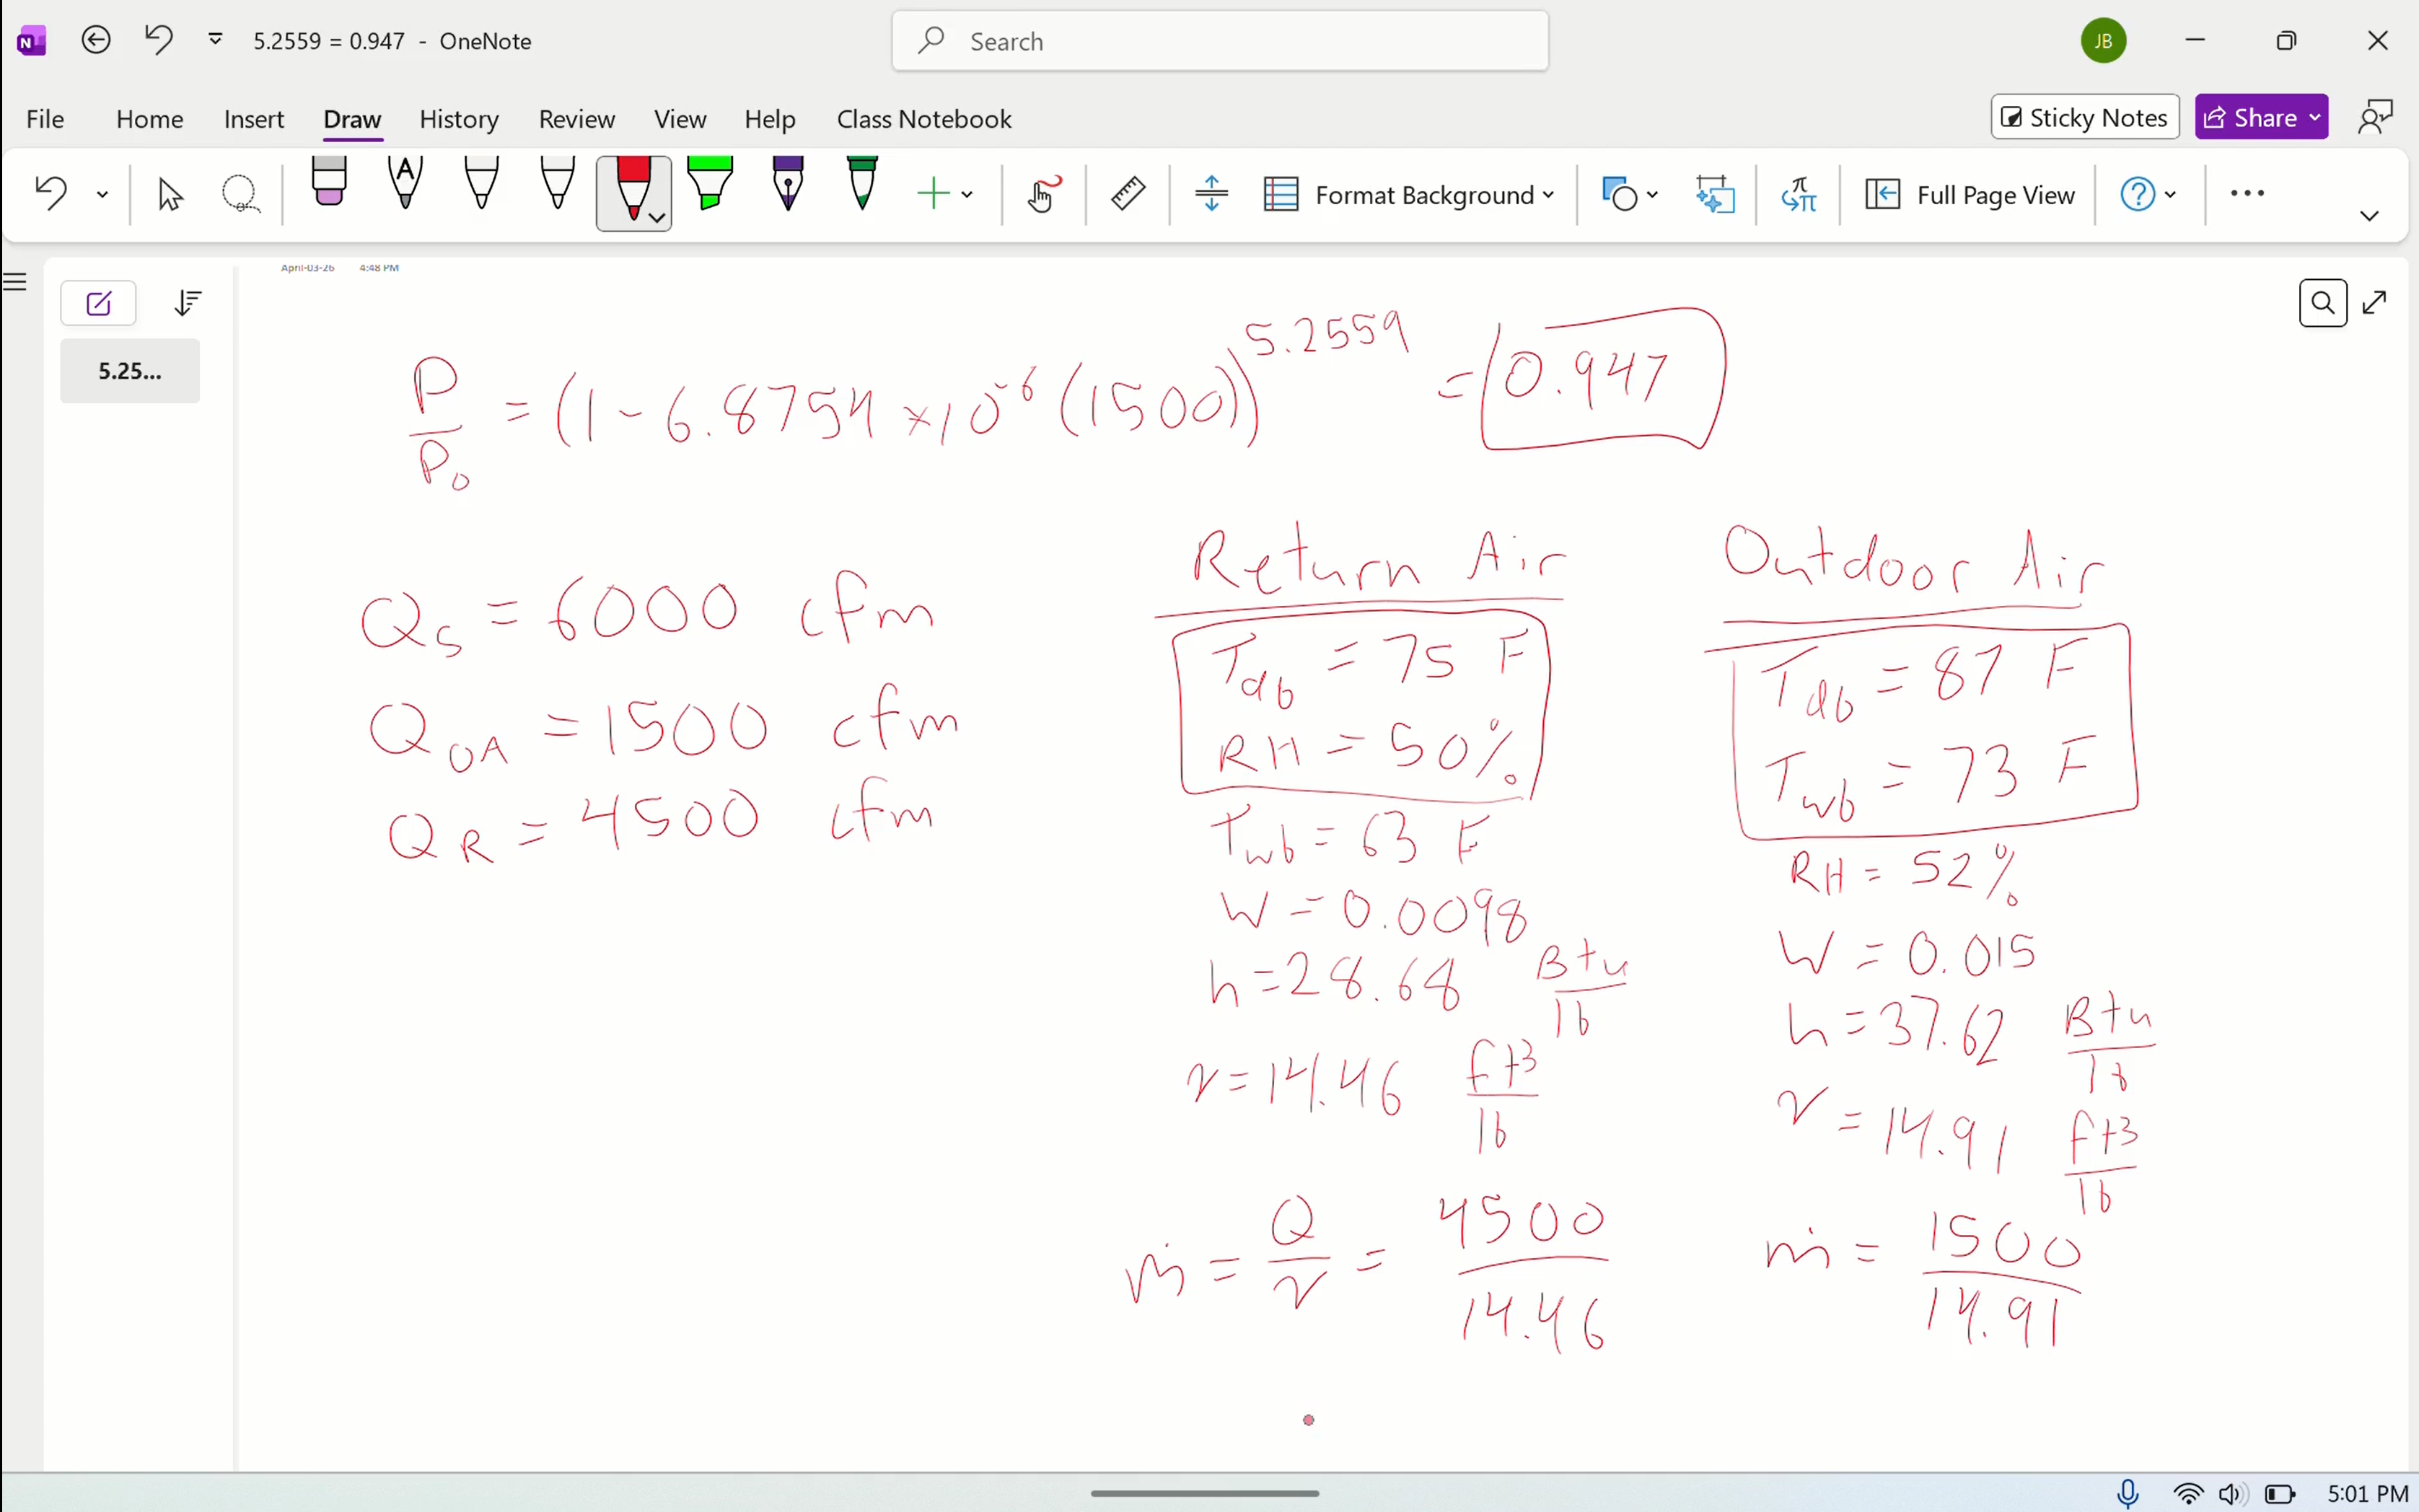 5.2559 = 0.947 - OneNote
Search
JB
File Home Insert Draw History Review View Help Class Notebook
Sticky Notes
Share
Format Background
Full Page View
April-03-26 4:48 PM
5.25...
P/P₀ = (1 - 6.8754 × 10⁻⁶ (1500))^5.2559 = 0.947
Q_S = 6000 cfm
Q_OA = 1500 cfm
Q_R = 4500 cfm
Return Air
T_db = 75 F
RH = 50%
T_wb = 63 F
W = 0.0098
h = 28.68 Btu/lb
v = 14.46 ft3/lb
ṁ = Q/v = 4500/14.46
Outdoor Air
T_db = 87 F
T_wb = 73 F
RH = 52%
W = 0.015
h = 37.62 Btu/lb
v = 14.91 ft3/lb
ṁ = 1500/14.91
5:01 PM